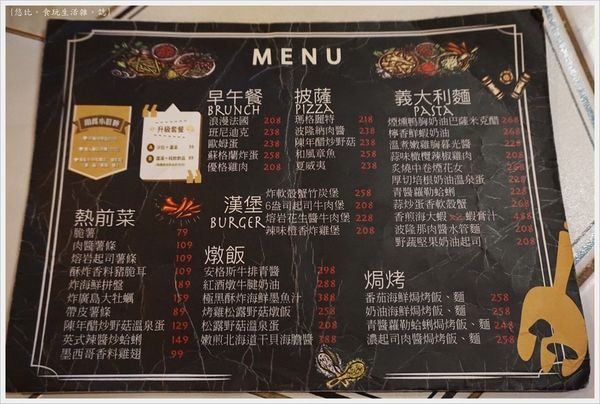 [悠比。食玩生活雜。誌]
MENU
早午餐
BRUNCH
浪漫法國 208
班尼迪克 238
歐姆蛋 238
蘇格蘭炸蛋 258
優格雞肉 208
披薩
PIZZA
瑪格麗特 218
波隆納肉醬 238
陳年醋炒野菇 238
和風章魚 258
夏威夷 238
義大利麵
PASTA
煙燻鴨胸奶油巴薩米克醋 268
檸香鮮蝦奶油 268
溫煮嫩雞胸暮光醬 228
蒜味橄欖辣椒雞肉 208
炙燒中卷煙花女 258
厚切培根奶油溫泉蛋 228
青醬羅勒蛤蜊 238
蒜炒墨香軟殼蟹 258
香煎海大蝦 蝦膏汁 468
波隆那肉醬水管麵 208
野蔬堅果奶油起司 208
升級套餐
熱前菜
脆薯 79
肉醬薯條 109
熔岩起司薯條 109
酥炸香料豬脆耳 109
炸海鮮拼盤 189
炸廣島大牡蠣 139
帶皮薯條 89
陳年醋炒野菇溫泉蛋 129
英式辣醬炒蛤蜊 149
墨西哥香料雞翅 99
漢堡
BURGER
炸軟殼蟹竹炭堡 258
6盎司起司牛肉堡 258
熔岩花生醬牛肉堡 228
辣味橙香炸雞堡 208
燉飯
安格斯牛排青醬 298
紅酒燉牛腱奶油 258
極黑酥炸海鮮墨魚汁 388
烤雞松露野菇燉飯 258
松露野菇溫泉蛋 208
嫩煎北海道干貝海膽醬 388
焗烤
番茄海鮮焗烤飯、麵 258
奶油海鮮焗烤飯、麵 258
青醬羅勒蛤蜊焗烤飯、麵 248
濃起司肉醬焗烤飯、麵 208